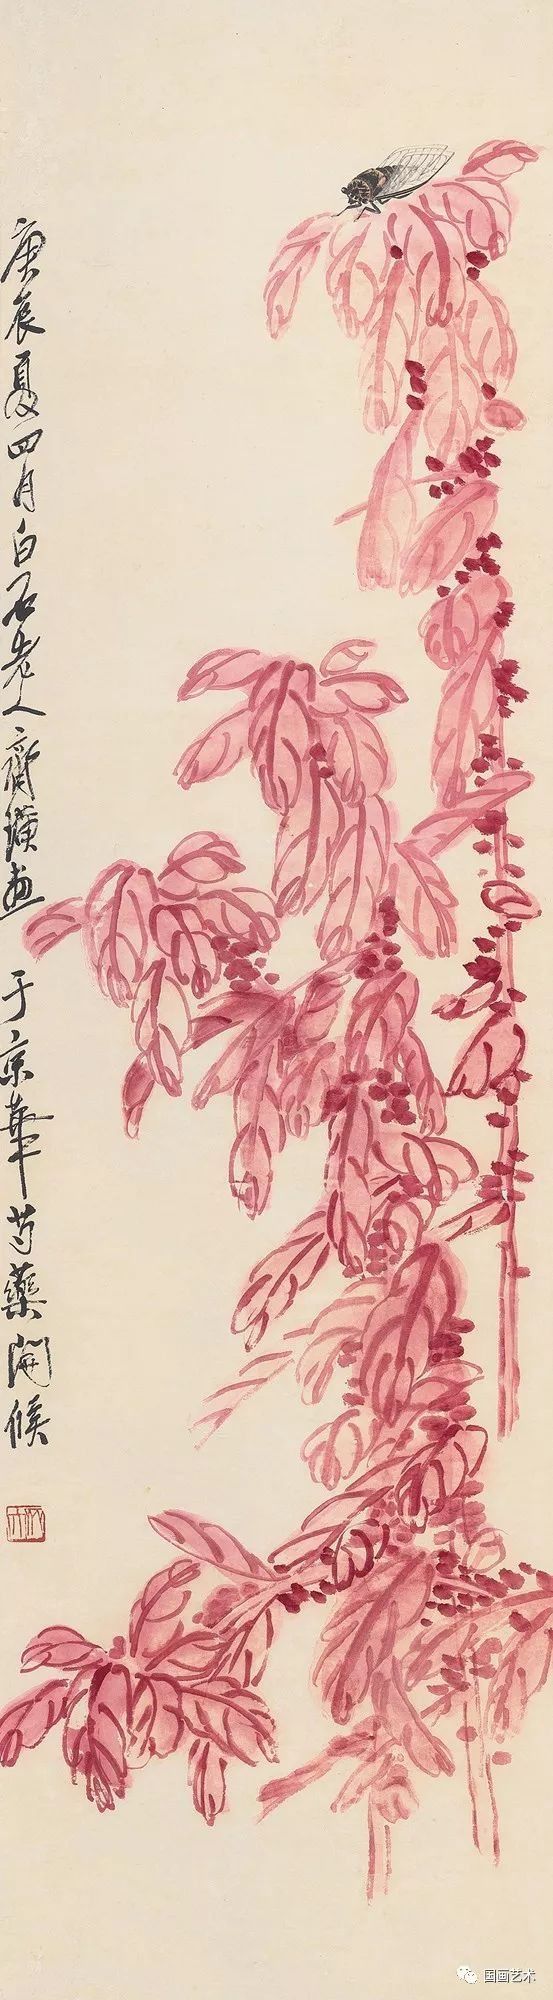 庚辰夏四月白石老人齊璜画于京華芍藥開候
国画艺术